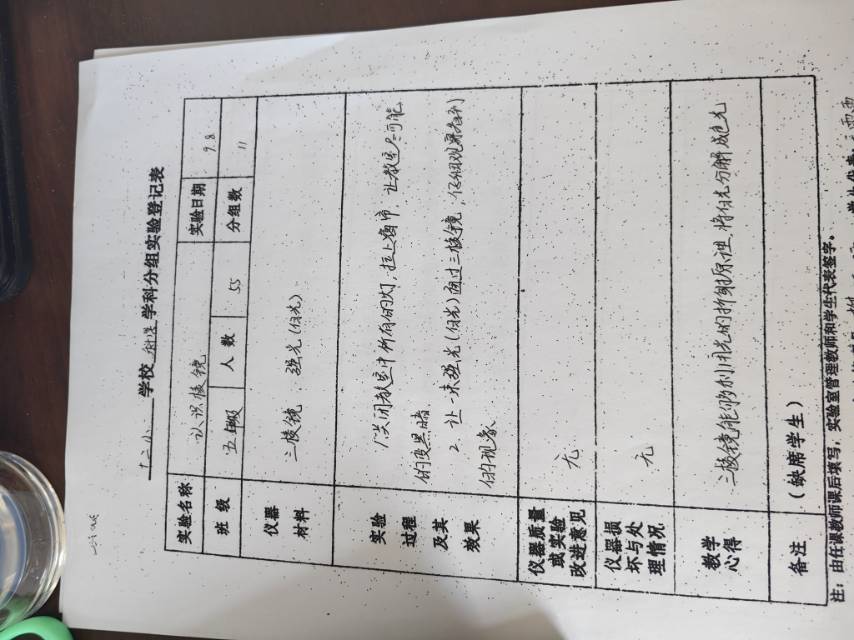 十二小 学校 科学 学科分组实验登记表
实验名称 认识棱镜 实验日期 9.8
班 级 五年级 人 数 55 分组数 11
仪器材料 三棱镜、强光(白光)
实验过程及其效果 1.关闭教室中所有的灯,拉上窗帘,让教室尽可能
的变黑暗
2. 让一束强光(白光)通过三棱镜,仔细观察看到
的现象
仪器质量或实验改进意见 无
仪器损坏与处理情况 无
教学心得 三棱镜能够利用光的折射原理,将白光分解成色光
备注 (缺席学生)
注:由任课教师课后填写,实验室管理教师和学生代表签字。